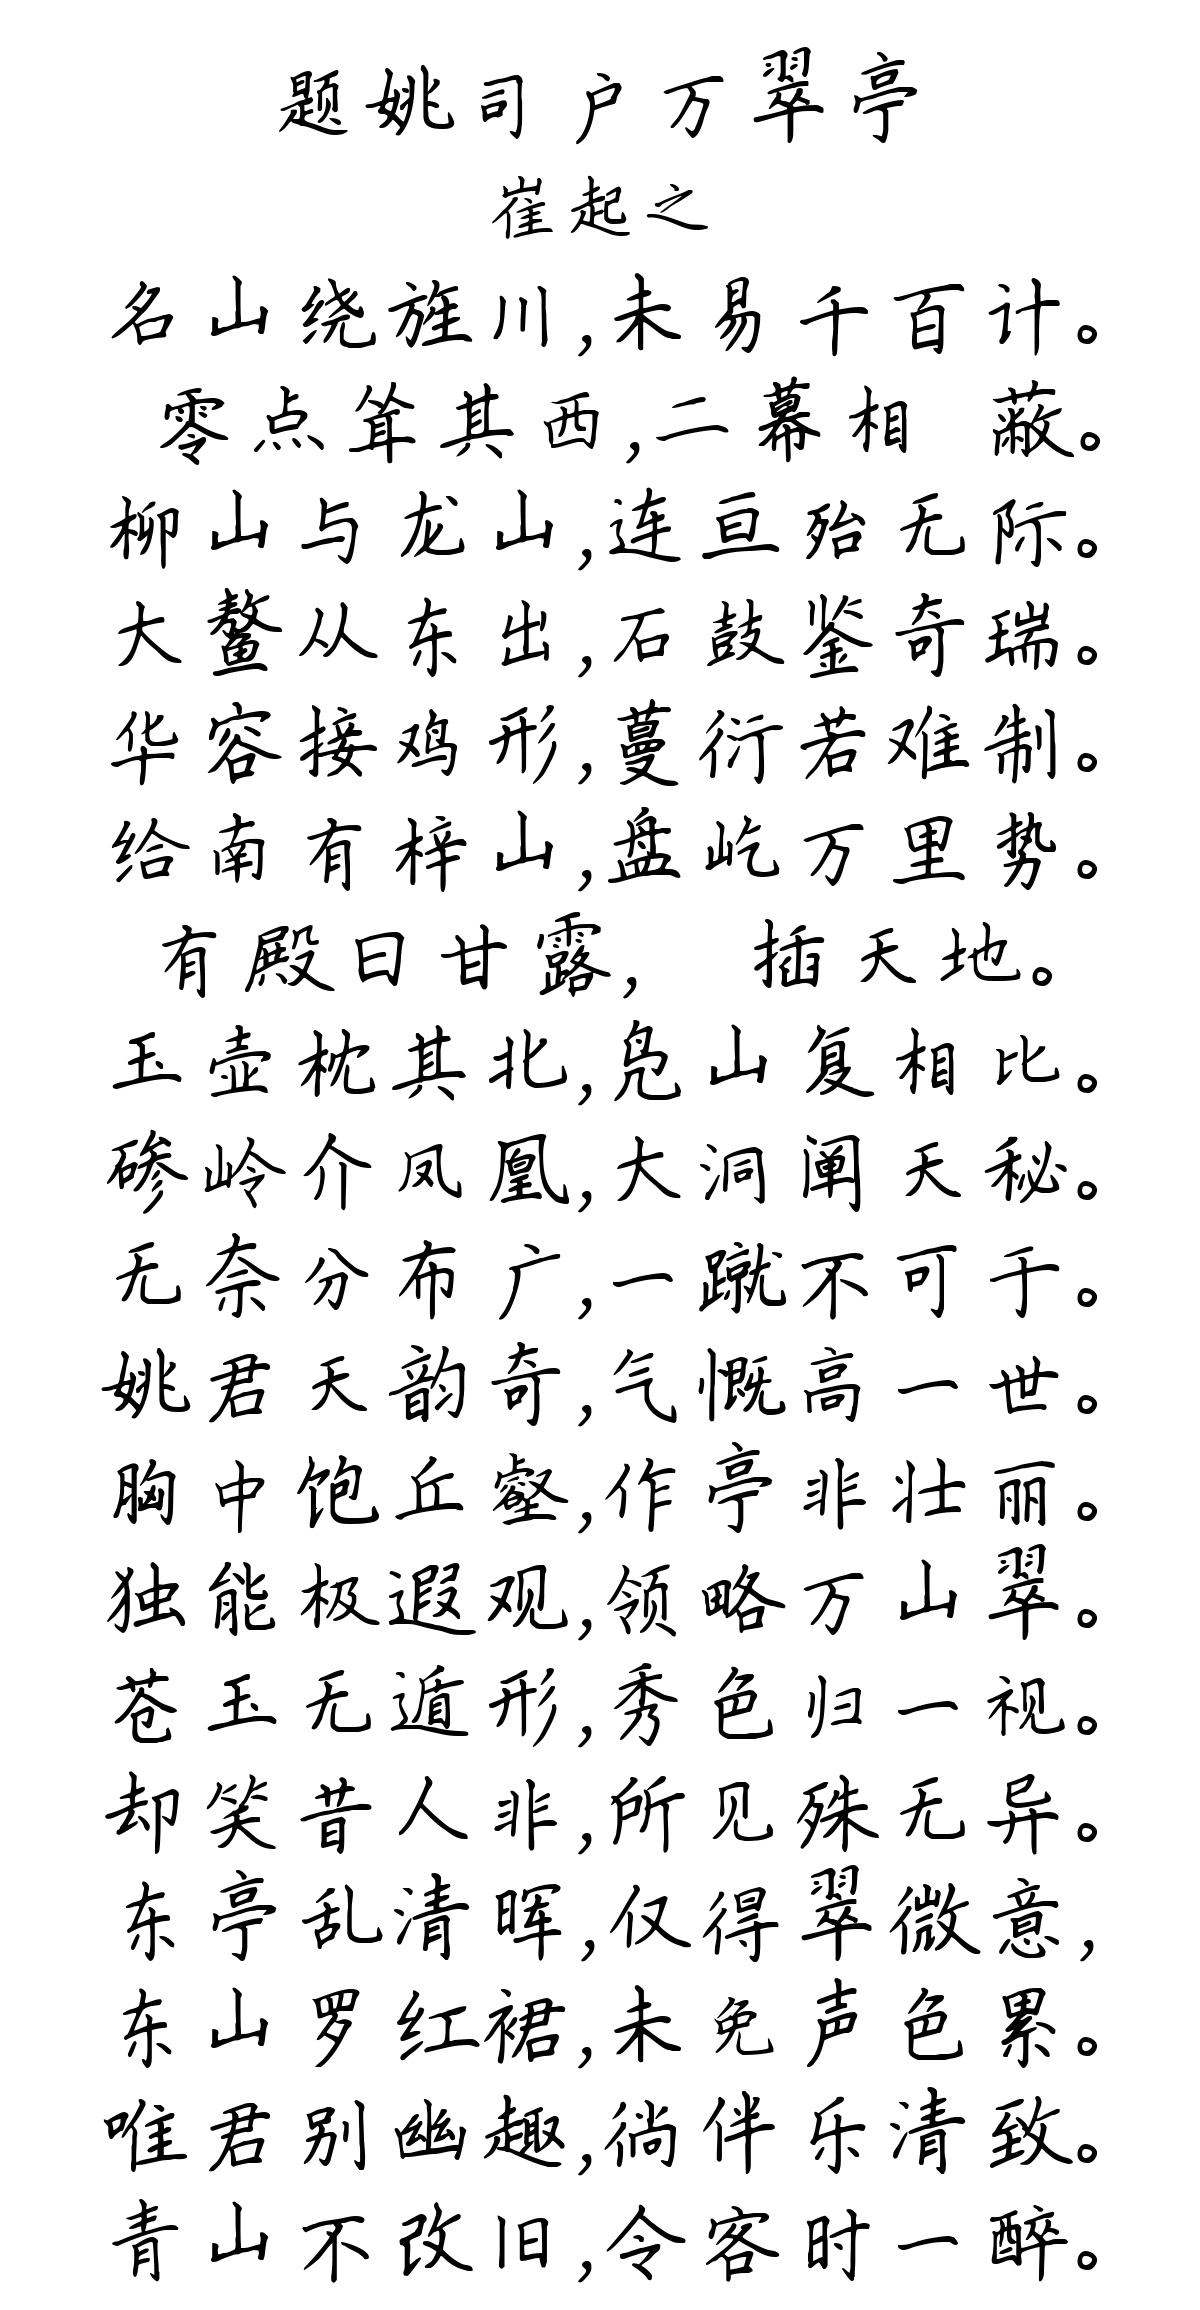 题姚司户万翠亭
崔起之
名山绕旌川,未易千百计。
零点耸其西,二幕相 蔽。
柳山与龙山,连亘殆无际。
大鳌从东出,石鼓鉴奇瑞。
华容接鸡形,蔓衍若难制。
给南有梓山,盘屹万里势。
有殿曰甘露, 插天地。
玉壶枕其北,凫山复相比。
碜岭介凤凰,大洞阐天秘。
无奈分布广,一蹴不可于。
姚君天韵奇,气慨高一世。
胸中饱丘壑,作亭非壮丽。
独能极遐观,领略万山翠。
苍玉无遁形,秀色归一视。
却笑昔人非,所见殊无异。
东亭乱清晖,仅得翠微意,
东山罗红裙,未免声色累。
唯君别幽趣,徜伴乐清致。
青山不改旧,令客时一醉。